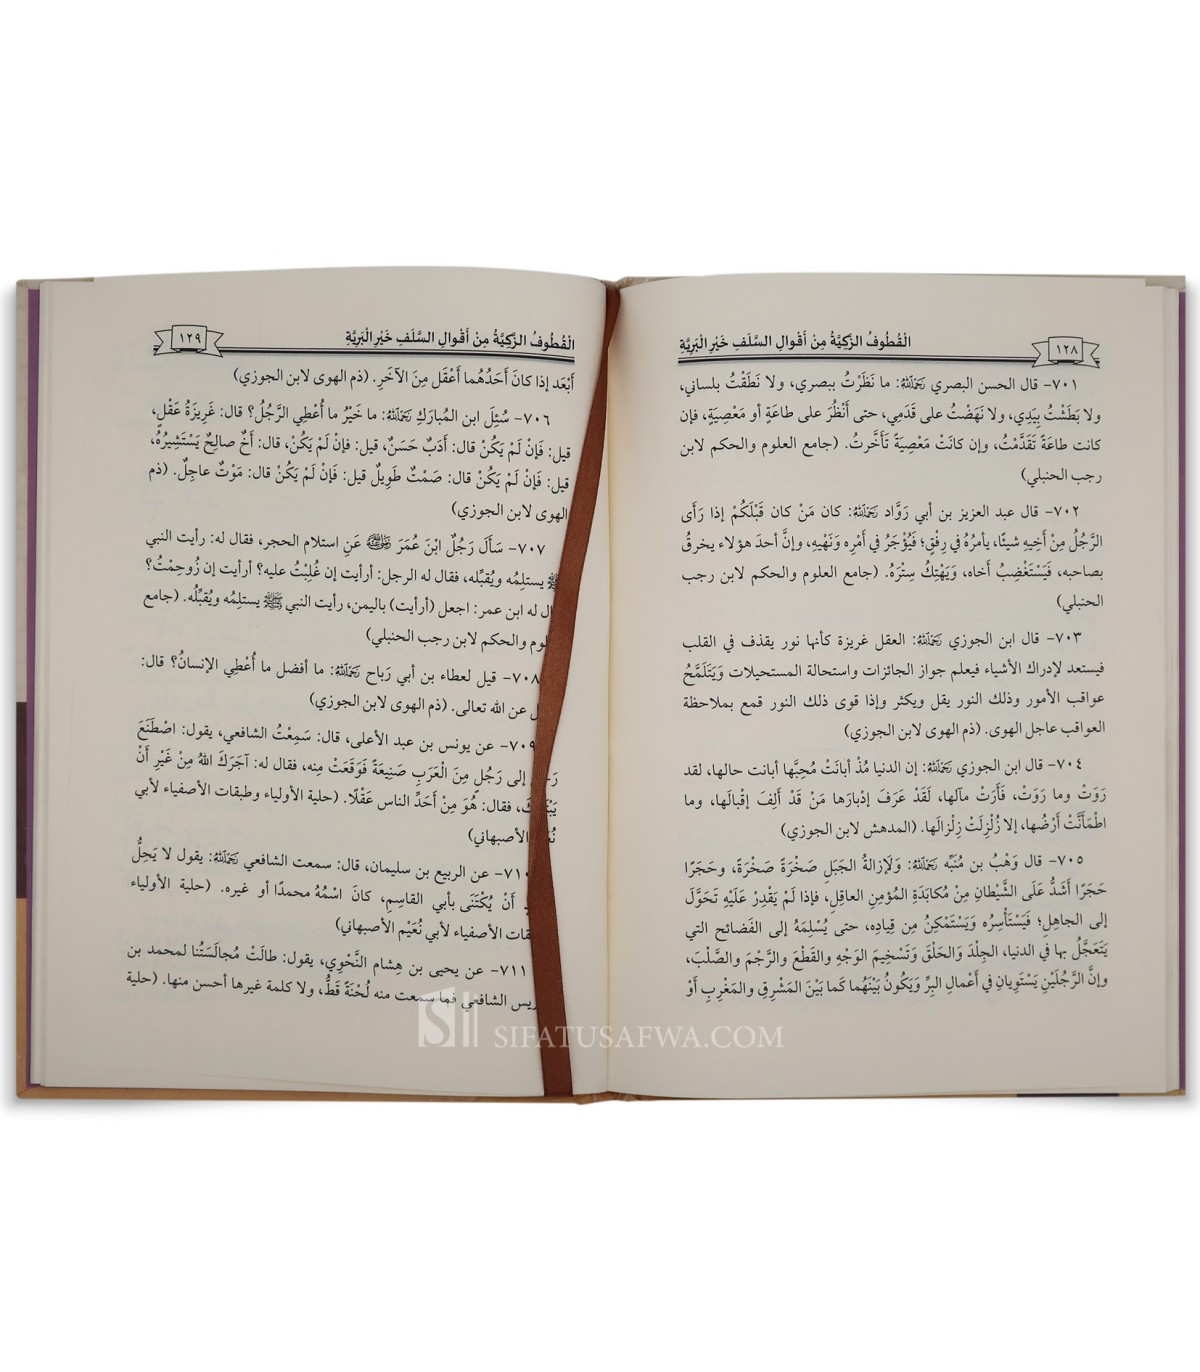 الْقُطُوفُ الزَّكِيَّةُ مِنْ أَقْوالِ السَّلَفِ خَيْرِ الْبَرِيَّةِ
١٢٨
٧٠١- قال الحسن البصري رَحِمَهُ اللهُ: ما نَظَرْتُ ببصري، ولا نَطَقْتُ بلساني،
ولا بَطَشْتُ بِيَدِي، ولا نَهَضْتُ على قَدَمِي، حتى أَنْظُرَ على طاعَةٍ أو مَعْصِيَةٍ، فإن
كانت طاعَةً تَقَدَّمْتُ، وإن كانَتْ مَعْصِيَةً تَأَخَّرتُ. (جامع العلوم والحكم لابن
رجب الحنبلي)
٧٠٢- قال عبد العزيز بن أبي رَوَّاد رَحِمَهُ اللهُ: كان مَنْ كان قَبْلَكُمْ إذا رَأَى
الرَّجُلُ مِنْ أَخِيهِ شيئًا، يأمرُهُ في رِفْقٍ؛ فَيُؤْجَرُ في أَمْرِه وَنَهْيِهِ، وإنَّ أحدَ هؤلاء يخرقُ
بصاحبه، فَيَسْتَغْضِبُ أخاه، وَيَهْتِكُ سِتْرَهُ. (جامع العلوم والحكم لابن رجب
الحنبلي)
٧٠٣- قال ابن الجوزي رَحِمَهُ اللهُ: العقل غريزة كأنها نور يقذف في القلب
فيستعد لإدراك الأشياء فيعلم جواز الجائزات واستحالة المستحيلات وَيَتَلَمَّحُ
عواقب الأمور وذلك النور يقل ويكثر وإذا قوى ذلك النور قمع بملاحظة
العواقب عاجل الهوى. (ذم الهوى لابن الجوزي)
٧٠٤- قال ابن الجوزي رَحِمَهُ اللهُ: إن الدنيا مُذْ أبانَتْ مُحِبَّها أبانت حالها، لقد
رَوَتْ وما رَوَتْ، فَأَرَتْ مآلها، لَقَدْ عَرَفَ إِدْبارَها مَنْ قَدْ أَلِفَ إِقْبالَها، وما
اطْمَأَنَّتْ أَرْضُها، إلا زُلْزِلَتْ زِلْزالَها. (المدهش لابن الجوزي)
٧٠٥- قال وَهْبُ بن مُنَبِّه رَحِمَهُ اللهُ: وَلَإزالةُ الجَبَلِ صَخْرَةً صَخْرَةً، وحَجَرًا
حَجَرًا أَشَدُّ عَلَى الشَّيْطانِ مِنْ مُكابَدَةِ المُؤْمنِ العاقِلِ، فإذا لَمْ يَقْدِرْ عَلَيْهِ تَحَوَّلَ
إلى الجاهِلِ؛ فَيَسْتَأْسِرُه وَيَسْتَمْكِنُ مِن قِيادِه، حتى يُسْلِمَهُ إلى الفَضائح التي
يَتَعَجَّلُ بها في الدنيا، الجِلْدَ وَالحَلْقَ وَتَسْخِيمَ الوَجْهِ والقَطْعَ والرَّجْمَ والصَّلْبَ،
وإنَّ الرَّجُلَيْنِ يَسْتَوِيانِ في أَعْمالِ البِرِّ وَيَكُونُ بَيْنَهُما كَما بَيْنَ المَشْرِقِ والمَغْرِبِ أَوْ
الْقُطُوفُ الزَّكِيَّةُ مِنْ أَقْوالِ السَّلَفِ خَيْرِ الْبَرِيَّةِ
١٢٩
أَبْعَد إذا كانَ أَحَدُهُما أَعْقَل مِنَ الآخَرِ. (ذم الهوى لابن الجوزي)
٧٠٦- سُئِلَ ابن المُبارَكِ رَحِمَهُ اللهُ: ما خَيْرُ ما أُعْطِي الرَّجُلُ؟ قال: غَرِيزَةُ عَقْلٍ،
قيل: فَإنْ لَمْ يَكُنْ قال: أَدَبٌ حَسَنٌ، قيل: فإنْ لَمْ يَكُنْ، قال: أَخٌ صالِحٌ يَسْتَشِيرُهُ،
قيل: فَإنْ لَمْ يَكُنْ قال: صَمْتٌ طَوِيلٌ قيل: فإنْ لَمْ يَكُنْ قال: مَوْتٌ عاجِلٌ. (ذم
الهوى لابن الجوزي)
٧٠٧- سَأَلَ رَجُلٌ ابْنَ عُمَرَ رَضِيَ اللهُ عَنْهُ عَنِ استلام الحجر، فقال له: رأيت النبي
ﷺ يستلِمُه ويُقبِّله، فقال له الرجل: أرأيت إن غُلِبْتُ عليه؟ أرأيت إن زُوحِمْتُ؟
ال له ابن عمر: اجعل (أرأيت) باليمن، رأيت النبي ﷺ يستلِمُه ويُقبِّلُه. (جامع
لوم والحكم لابن رجب الحنبلي)
٧٠٨- قيل لعطاء بن أبي رَباح رَحِمَهُ اللهُ: ما أفضل ما أُعْطِي الإنسانُ؟ قال:
ل عن الله تعالى. (ذم الهوى لابن الجوزي)
٧٠٩- عن يونس بن عبد الأعلى، قال: سَمِعْتُ الشافعي، يقول: اصْطَنَعَ
رَجُلٌ إلى رَجُلٍ مِنَ العَرَبِ صَنِيعَةً فَوَقَعَتْ منه، فقال له: آجَرَكَ اللهُ مِنْ غَيْرِ أَنْ
فقال: هُوَ مِنْ أَحَدِّ الناس عَقْلًا. (حلية الأولياء وطبقات الأصفياء لأبي
الأصبهاني)
٧١٠- عن الربيع بن سليمان، قال: سمعت الشافعي رَحِمَهُ اللهُ: يقول لا يَحِلُّ
أَنْ يُكْتَنَى بأبي القاسِمِ، كانَ اسْمُهُ محمدًا أو غيره. (حلية الأولياء
قات الأصفياء لأبي نُعَيْم الأصبهاني)
٧١١- عن يحيى بن هِشام النَّحْوِي، يقول: طالَتْ مُجالَسَتُنا لمحمد بن
ريس الشافعي فما سمعت منه لُحْنَةً قَطُّ، ولا كلمة غيرها أحسن منها. (حلية
SIFATUSAFWA.COM